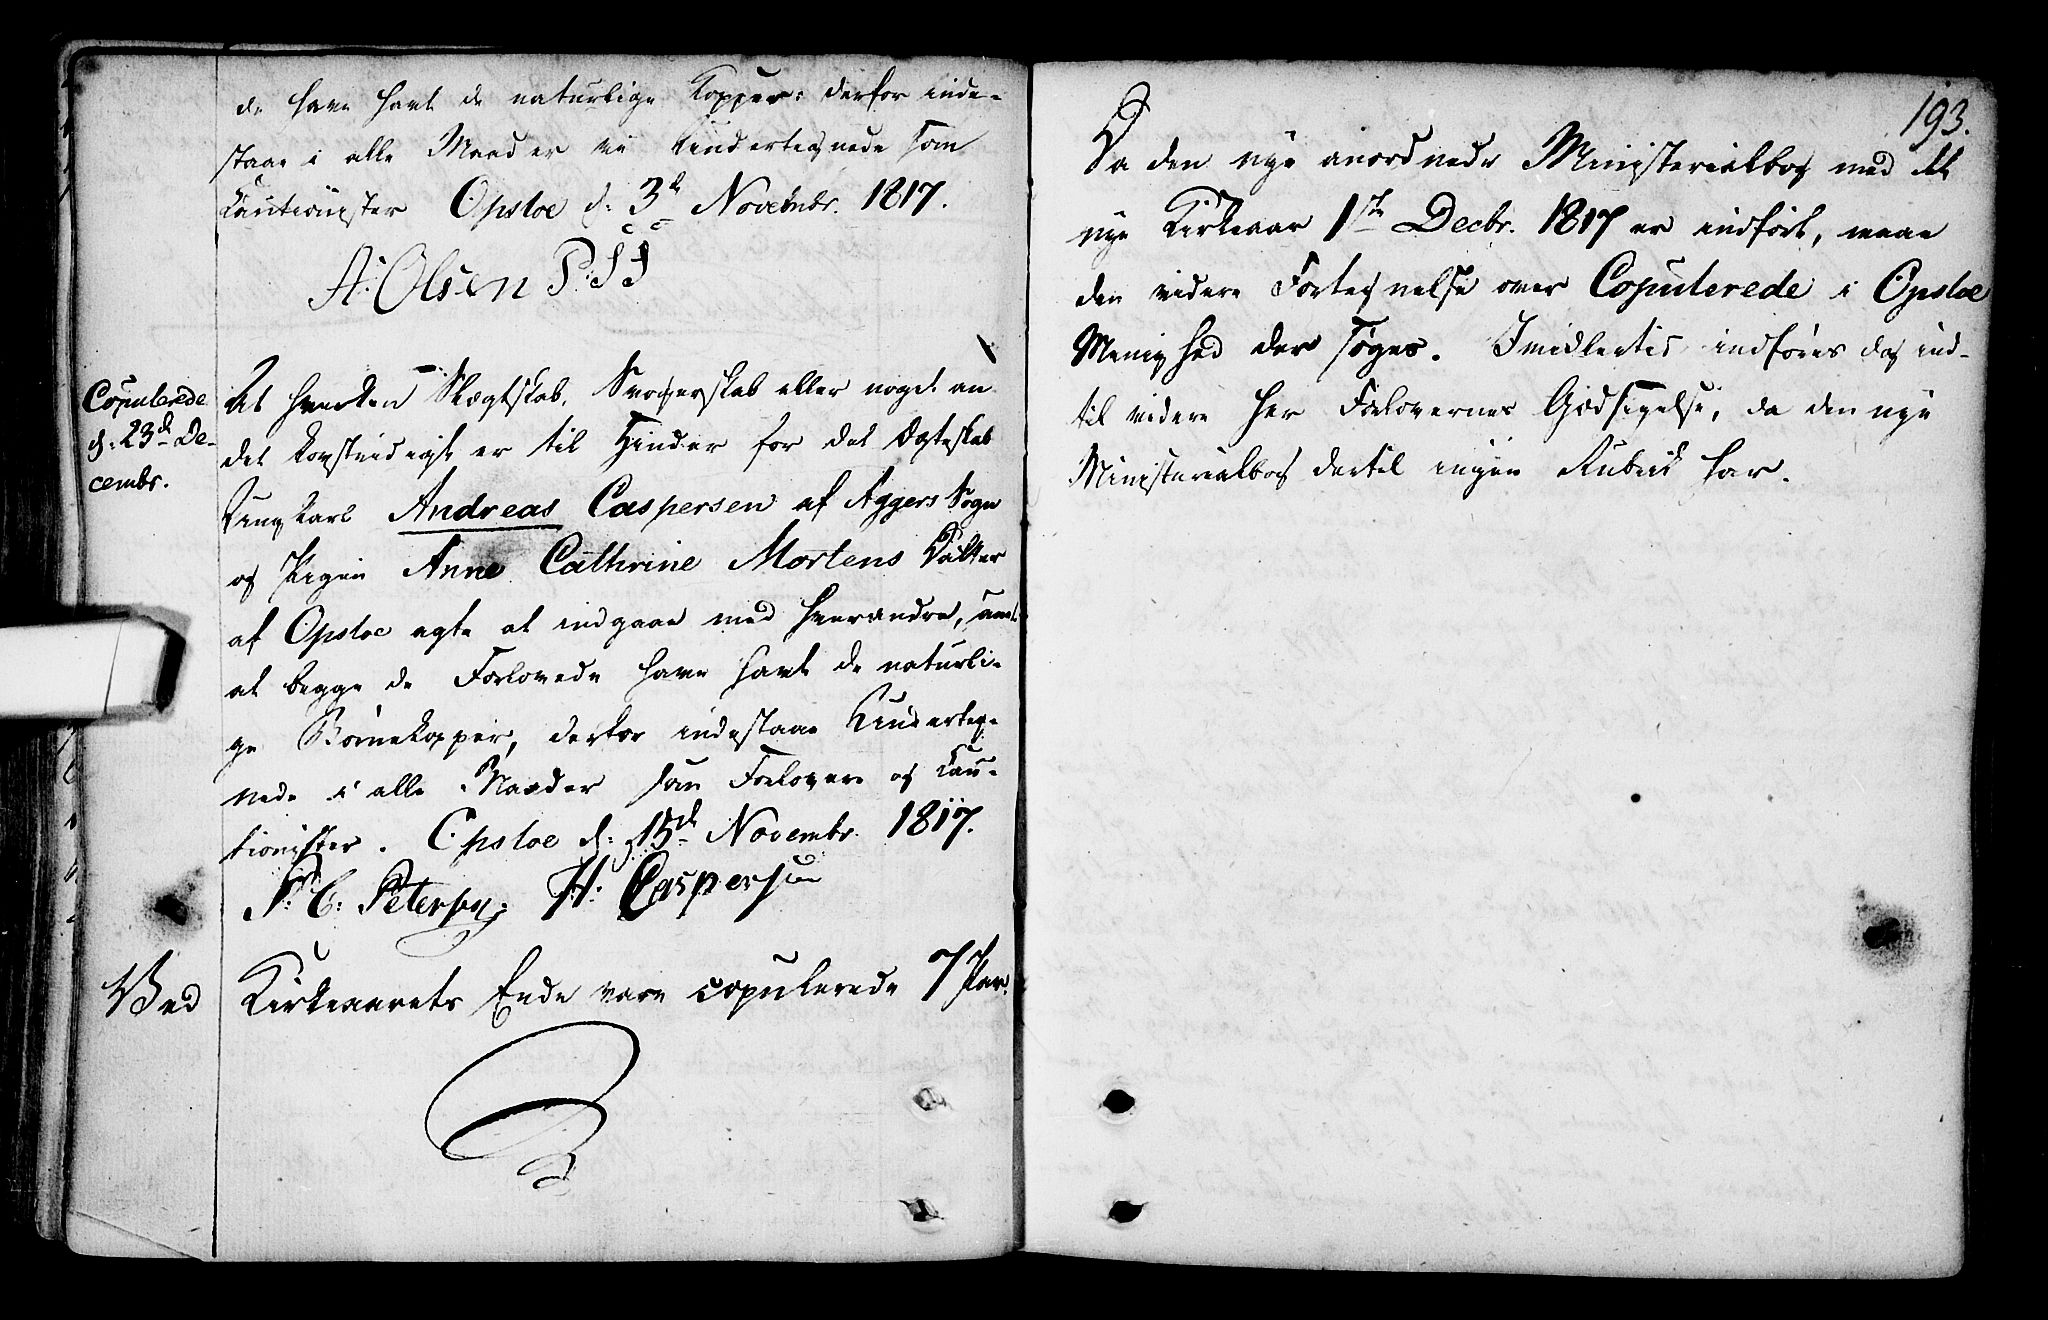 de have havt de naturlige Kopper: derfor inde-
staae i alle Maader vi Undertegnede som
Cautionister Opsloe d: 3de Novembr. 1817.
A: Olsen
Copulerede
d: 23de De-
cembr.
At hverken Slægtskab, Svogerskab eller noget an
det Lovstridigt er til Hinder for det Ægteskab
Ungkarl Andreas Caspersen af Aggers Sogn
og Pigen Anne Cathrine Mortens Datter
af Opsloe agte at indgaae med hverandre, samt
at begge de Forlovede have havt de naturli-
ge Børnekopper, derfor indestaae Underteg-
nede i alle Maader som Forlovere og Cau-
tionister. Opsloe d: 15de Novembr. 1817.
P: C: Petersen, H: Caspersen
Ved Kirkeaarets Ende vare copulerede 7 Par.
193.
Da den nye anordnede Ministerialbog med det
nye Kirkeaar 1ste Decbr. 1817 er indført, maae
den videre Fortegnelse over Copulerede i Opsloe
Menighed der søges. Imidlertid indføres dog ind-
til videre her Forlovernes Godsigelse, da den nye
Ministerialbog dertil ingen Rubrik har.